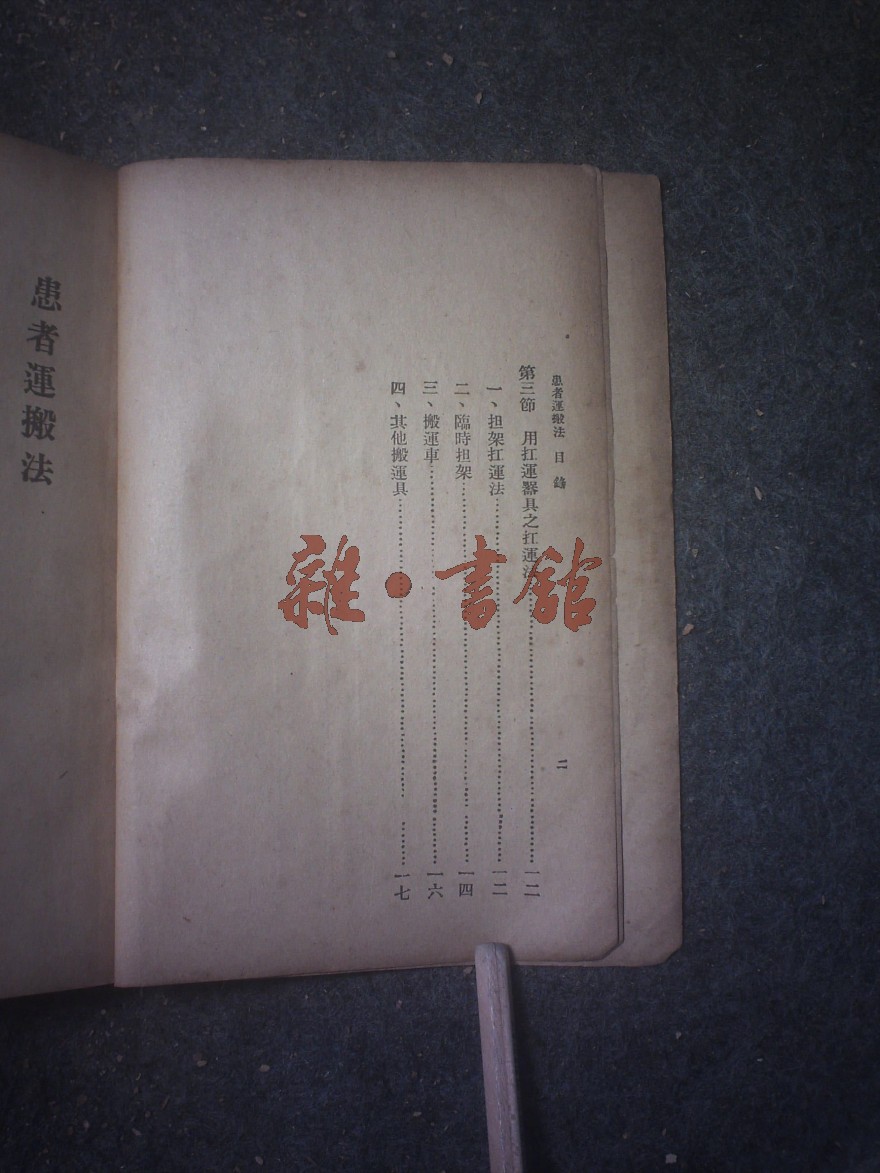 患者運搬法 目錄
二
第三節 用扛運器具之扛運法……一二
一、担架扛運法……一二
二、臨時担架……一四
三、搬運車……一六
四、其他搬運具……一七
患者運搬法
雜·書館